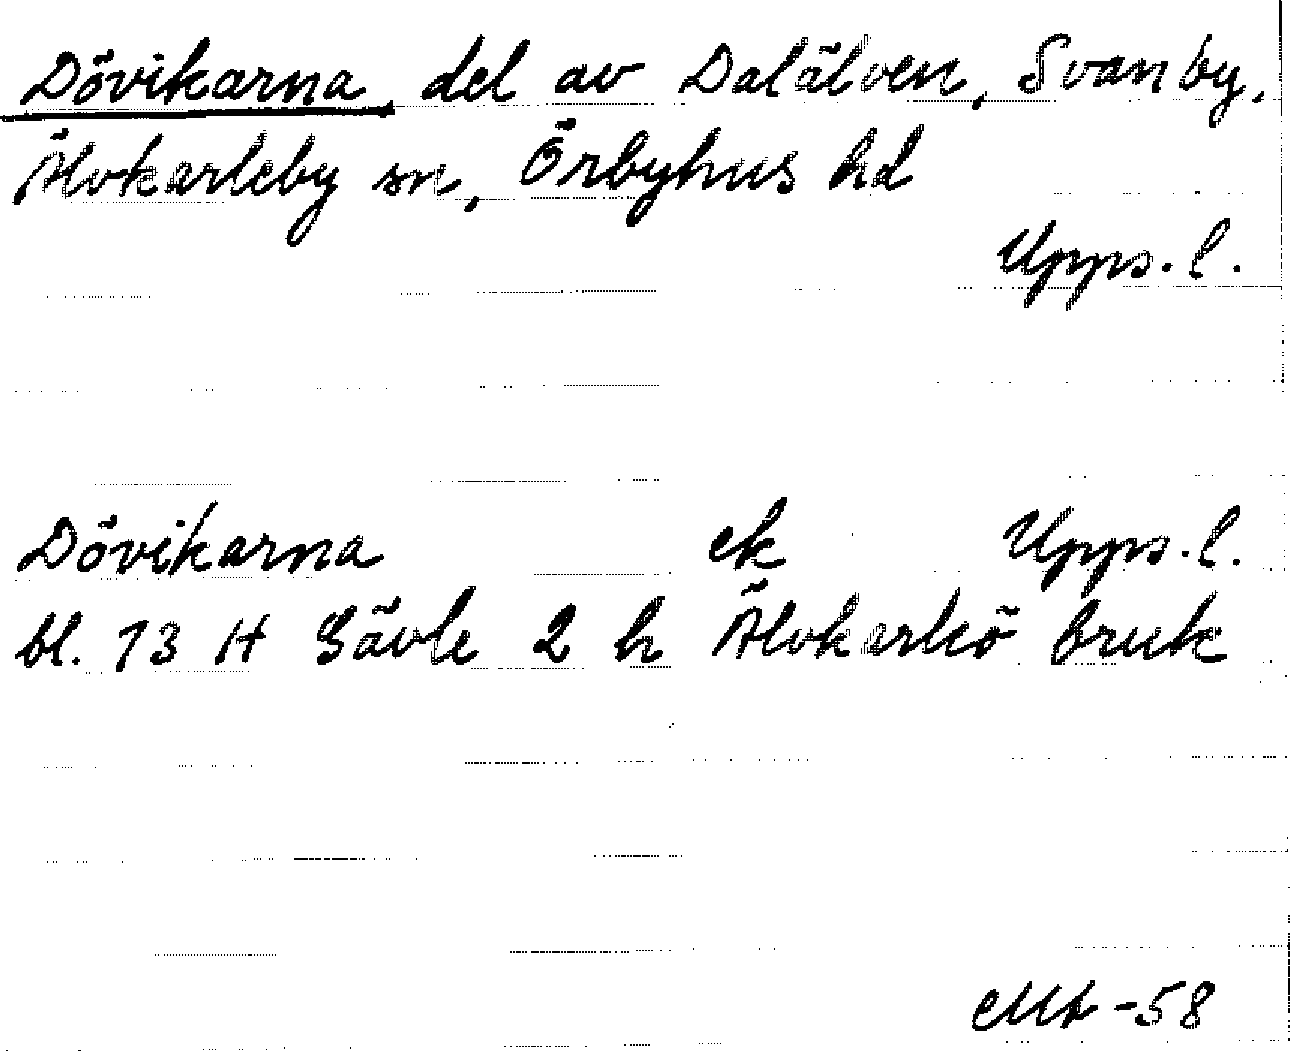 Dövikarna, del av Dalälven, Svanby,
Älvkarleby sn, Örbyhus hd
Upps. l.
Dövikarna ek Upps. l.
bl. 13 H Gävle 2 h Älvkarleö bruk
-58